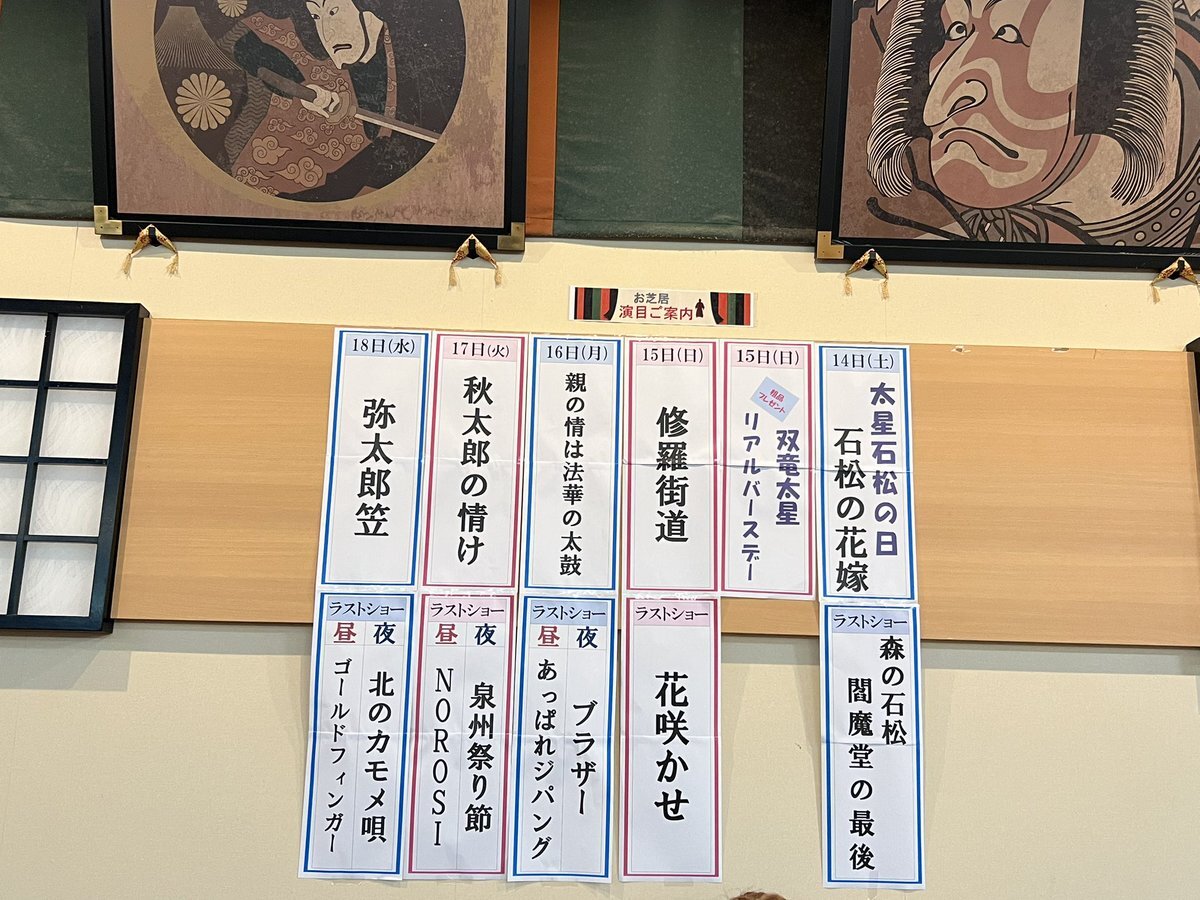 お芝居
演目ご案内
14日(土)
太星石松の日
石松の花嫁
15日(日)
粗品
プレゼント
双竜太星
リアルバースデー
15日(日)
修羅街道
16日(月)
親の情は法華の太鼓
17日(火)
秋太郎の情け
18日(水)
弥太郎笠
ラストショー
森の石松
閻魔堂の最後
ラストショー
花咲かせ
ラストショー
夜
ブラザー
昼
あっぱれジパング
ラストショー
夜
泉州祭り節
昼
NOROSI
ラストショー
夜
北のカモメ唄
昼
ゴールドフィンガー